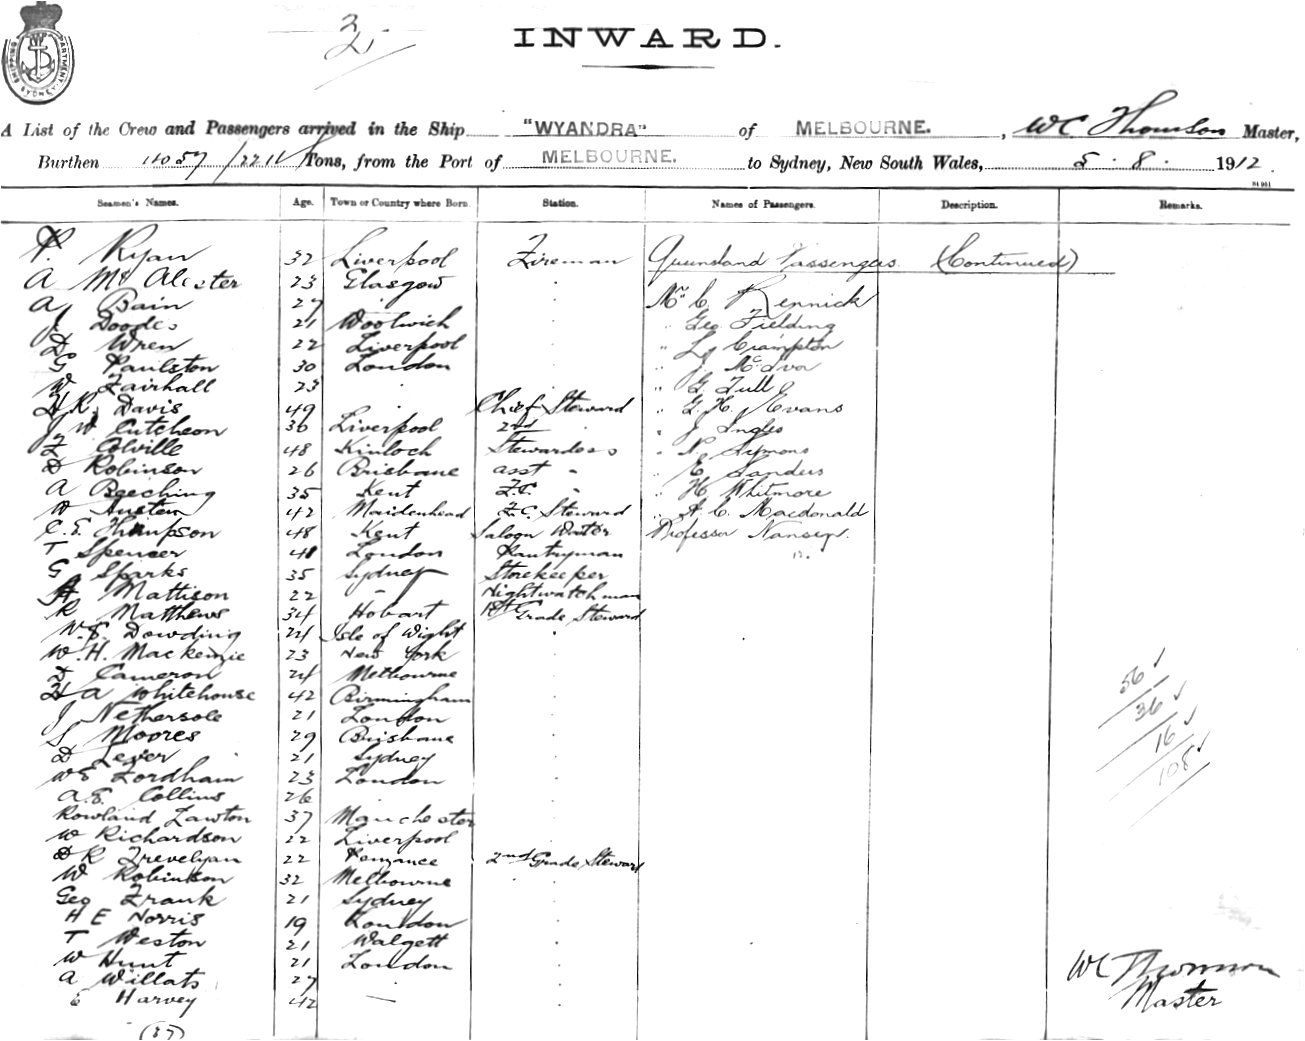 INWARD.
SHIPPING DEPARTMENT. SYDNEY
A List of the Crew and Passengers arrived in the Ship "WYANDRA" of MELBOURNE. , WC Thomson Master,
Burthen 4057/2211 Tons, from the Port of MELBOURNE. to Sydney, New South Wales, 5 . 8 . 1912.
Seamen's Names. Age. Town or Country where Born. Station. Names of Passengers. Description. Remarks.
P. Ryan 32 Liverpool Fireman Queensland Passengers (Continued)
A McAlester 23 Glasgow "
A Bain 27 " Mr C. Rennick
J Doodes 21 Woolwich " " Geo Fielding
D Wren 22 Liverpool " " L Crampton
G Paulston 30 London " " J. McIvor
W Fairhall 23 " " " G. Tull
H R Davis 49 " Chief Steward " G. H. Evans
J W Cutcheon 36 Liverpool 2nd " " J Ingles
F Colville 48 Kinloch Stewardess " N Symons
D Robinson 26 Brisbane asst " " E Sanders
A Beeching 35 Kent F.C. " " H Whitmore
W Austen 42 Maidenhead F.C. Steward " A. C. Macdonald
C. E. Thompson 48 Kent Saloon Waiter Professor Nansen.
T Spencer 41 London Pantryman 12.
G Sparks 35 Sydney Storekeeper
A Mattison 22 " Nightwatchman
R Matthews 34 Hobart 1st Grade Steward
W. S. Dowding 24 Isle of Wight "
W. H. Mackenzie 23 New York "
D Cameron 24 Melbourne "
H A Whitehouse 42 Birmingham "
J Nethersole 21 London "
S Moores 29 Brisbane "
D Lever 21 Sydney "
W E Fordham 23 London "
A. E. Collins 26 " "
Rowland Lawton 37 Manchester "
W Richardson 22 Liverpool "
D R Trevelyan 22 Penzance 2nd Grade Steward
W Robinson 32 Melbourne "
Geo Frank 21 Sydney "
H E Norris 19 London "
T Weston 21 Walgett "
W Hunt 21 London "
A Willats 27 " "
E Harvey 42 — "
(37)
56
36
16
108
WC Thomson
Master